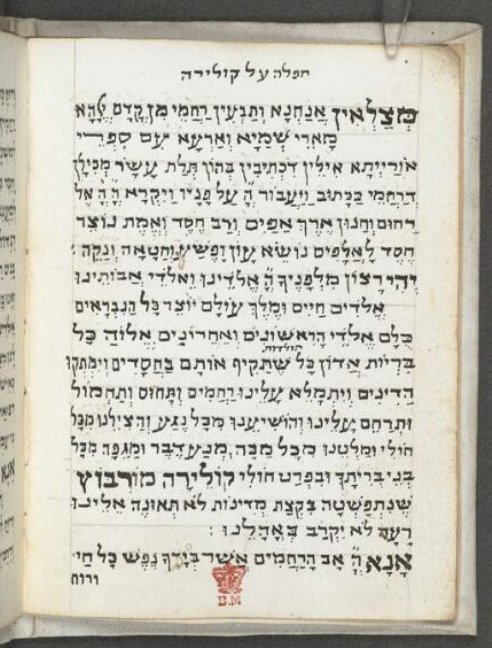 תפלה על קולירה
מְצַלְאִין אֲנַחְנָא וְתַבְעִין רַחֲמֵי מִן קֳדָם אֱלָהָא
מָארֵי שְׁמַיָא וְאַרְעָא עִם סִפְרֵי
אוֹרַיְיתָא אִילֵין דִכְתִיבִין בְּהוֹן תְּלַת עָשָׂר מְכִילָן
דְרַחֲמֵי כַּכָּתוּב וַיַעֲבוֹר ה' עַל פָּנָיו וַיִקְרָא ה' ה' אֵל
רַחוּם וְחַנוּן אֶרֶךְ אַפַּיִם וְרַב חֶסֶד וֶאֱמֶת נוֹצֵר
חֶסֶד לָאֲלָפִים נוֹשֵׂא עָוֹן וָפֶשַׁע וְחַטָאָה וְנַקֵה :
יְהִי רָצוֹן מִלְפָנֶיךָ ה' אֱלֹדֵינוּ וֵאלֹדֵי אֲבוֹתֵינוּ
אֱלֹדִים חַיִים וּמֶלֶךְ עוֹלָם יוֹצֵר כָּל הַנִבְרָאִים
כֻּלָם אֱלֹדֵי הָרִאשׁוֹנִים וְאַחֲרוֹנִים אֱלוֹהַ כָּל
תולדות
בְּרִיוֹת אֲדוֹן כָּל שֶׁתַּקִיף אוֹתָם בַּחֲסָדִים וְיִמְתְּקוּ
הַדִינִים וְיִתְמַלֵא עָלֵינוּ רַחֲמִים וְתָחוּס וְתַחְמוֹל
וּתְרַחֵם עָלֵינוּ וְהוֹשִׁיעֵנוּ מִכָּל נֶגַע וְהַצִילֵנוּ מִכָּל
חוֹלִי וּמַלְטֵנוּ מִכָּל מַכָּה, מִנַע דֶבֶר וּמַגֵפָה מִכָּל
בְּנֵי בְּרִיתֶךָ וּבִפְרַט חוֹלִי קוֹלֵירָה מוֹרְבּוֹץ
שֶׁנִתְפַּשְׁטָה בִּקְצַת מְדִינוֹת לֹא תְאוּנֶה אֵלֵינוּ
רָעָה לֹא יִקְרַב בְּאָהֳלֵנוּ :
אָנָא ה' אַב הָרַחֲמִים אֲשֶׁר בְּיָדְךָ נֶפֶשׁ כָּל חַי
ורוח
B.M